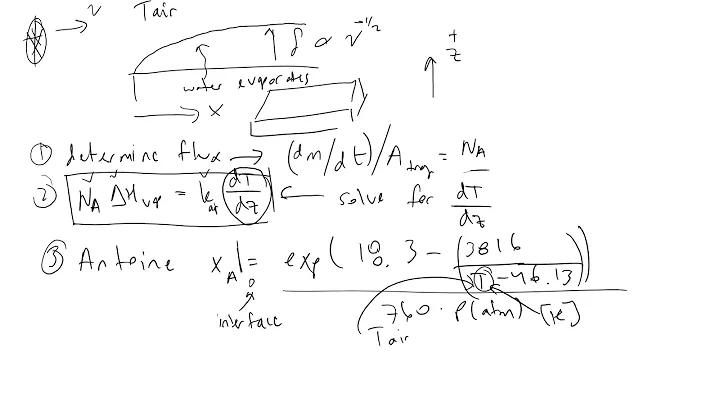 v Tair
δ ∝ v^-1/2
+
z
water evaporates
x
① determine flux → (dm/dt)/A tray = NA
② NA ΔHvap = kair dT/dz ← solve for dT/dz
③ Antoine xA|0 = exp(18.3 - (3816/(T-46.13)))/(760 · P(atm)) [K]
interface
Tair